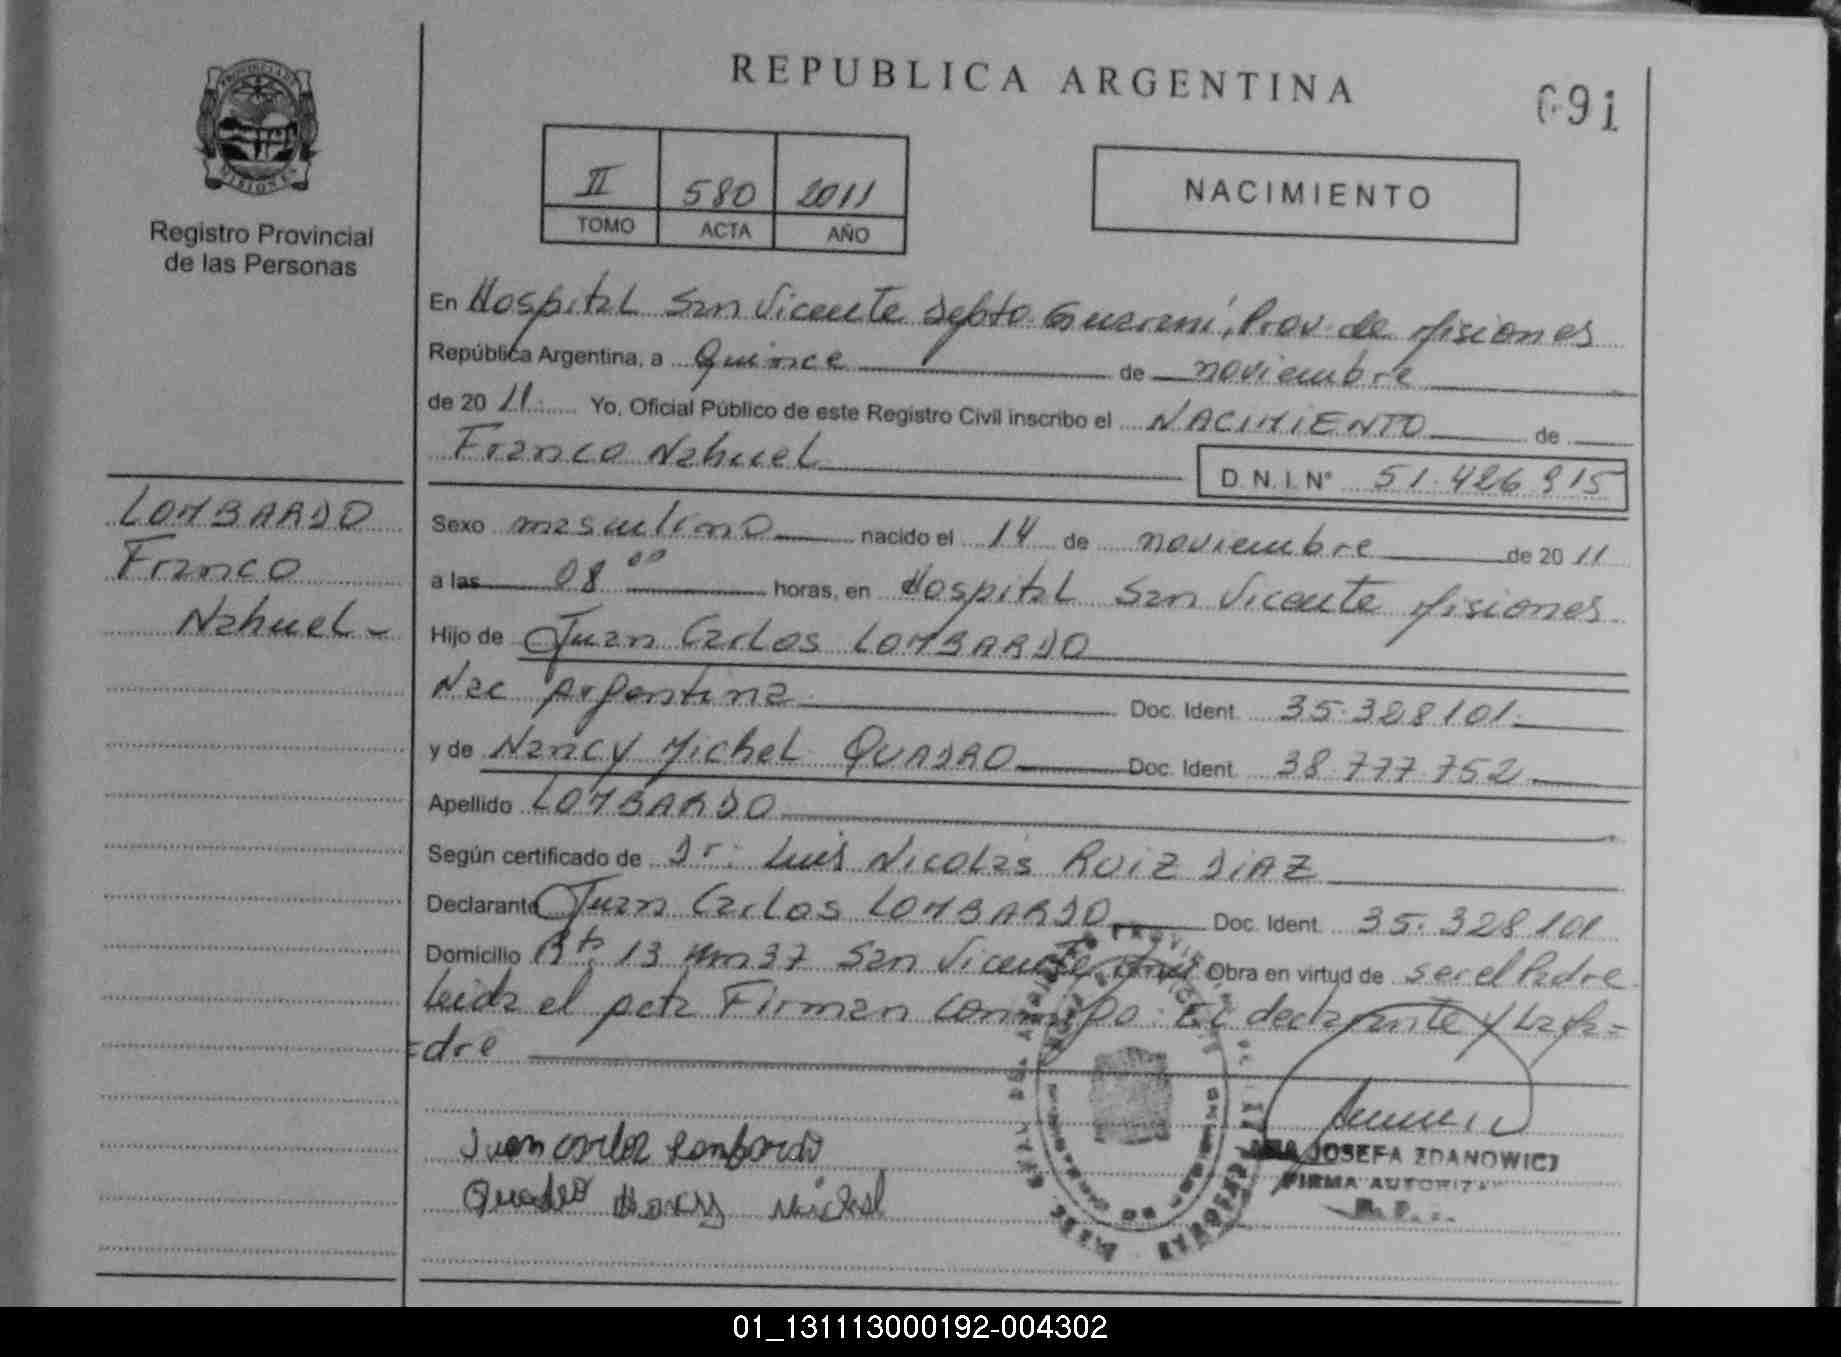 REPUBLICA ARGENTINA
691
PROVINCIA DE
MISIONES
Registro Provincial
de las Personas
II 580 2011
TOMO ACTA AÑO
NACIMIENTO
En Hospital San Vicente Depto Guarani, Prov. de Misiones
República Argentina, a Quince de noviembre
de 20 11 Yo, Oficial Público de este Registro Civil inscribo el NACIMIENTO de
Franco Nahuel D.N.I. N° 51.426.915
LOMBARDO
Franco
Nahuel-
Sexo masculino nacido el 14 de noviembre de 20 11
a las 08 00 horas, en Hospital San Vicente Misiones
Hijo de Juan Carlos LOMBARDO
Nac Argentina Doc. Ident. 35.328.101.
y de Nancy Michel QUADRO Doc. Ident. 38.777.752
Apellido LOMBARDO
Según certificado de Dr. Luis Nicolas RUIZ DIAZ
Declarante Juan Carlos LOMBARDO Doc. Ident. 35.328.101
Domicilio Rta. 13 Km 37 San Vicente Obra en virtud de ser el Padre
Leida el acta Firman conmigo: El declarante y La Ma=
=dre
Juan carlos Lombardo
Quadro Nancy Michel
JOSEFA ZDANOWICZ
FIRMA AUTORIZA
01_131113000192-004302